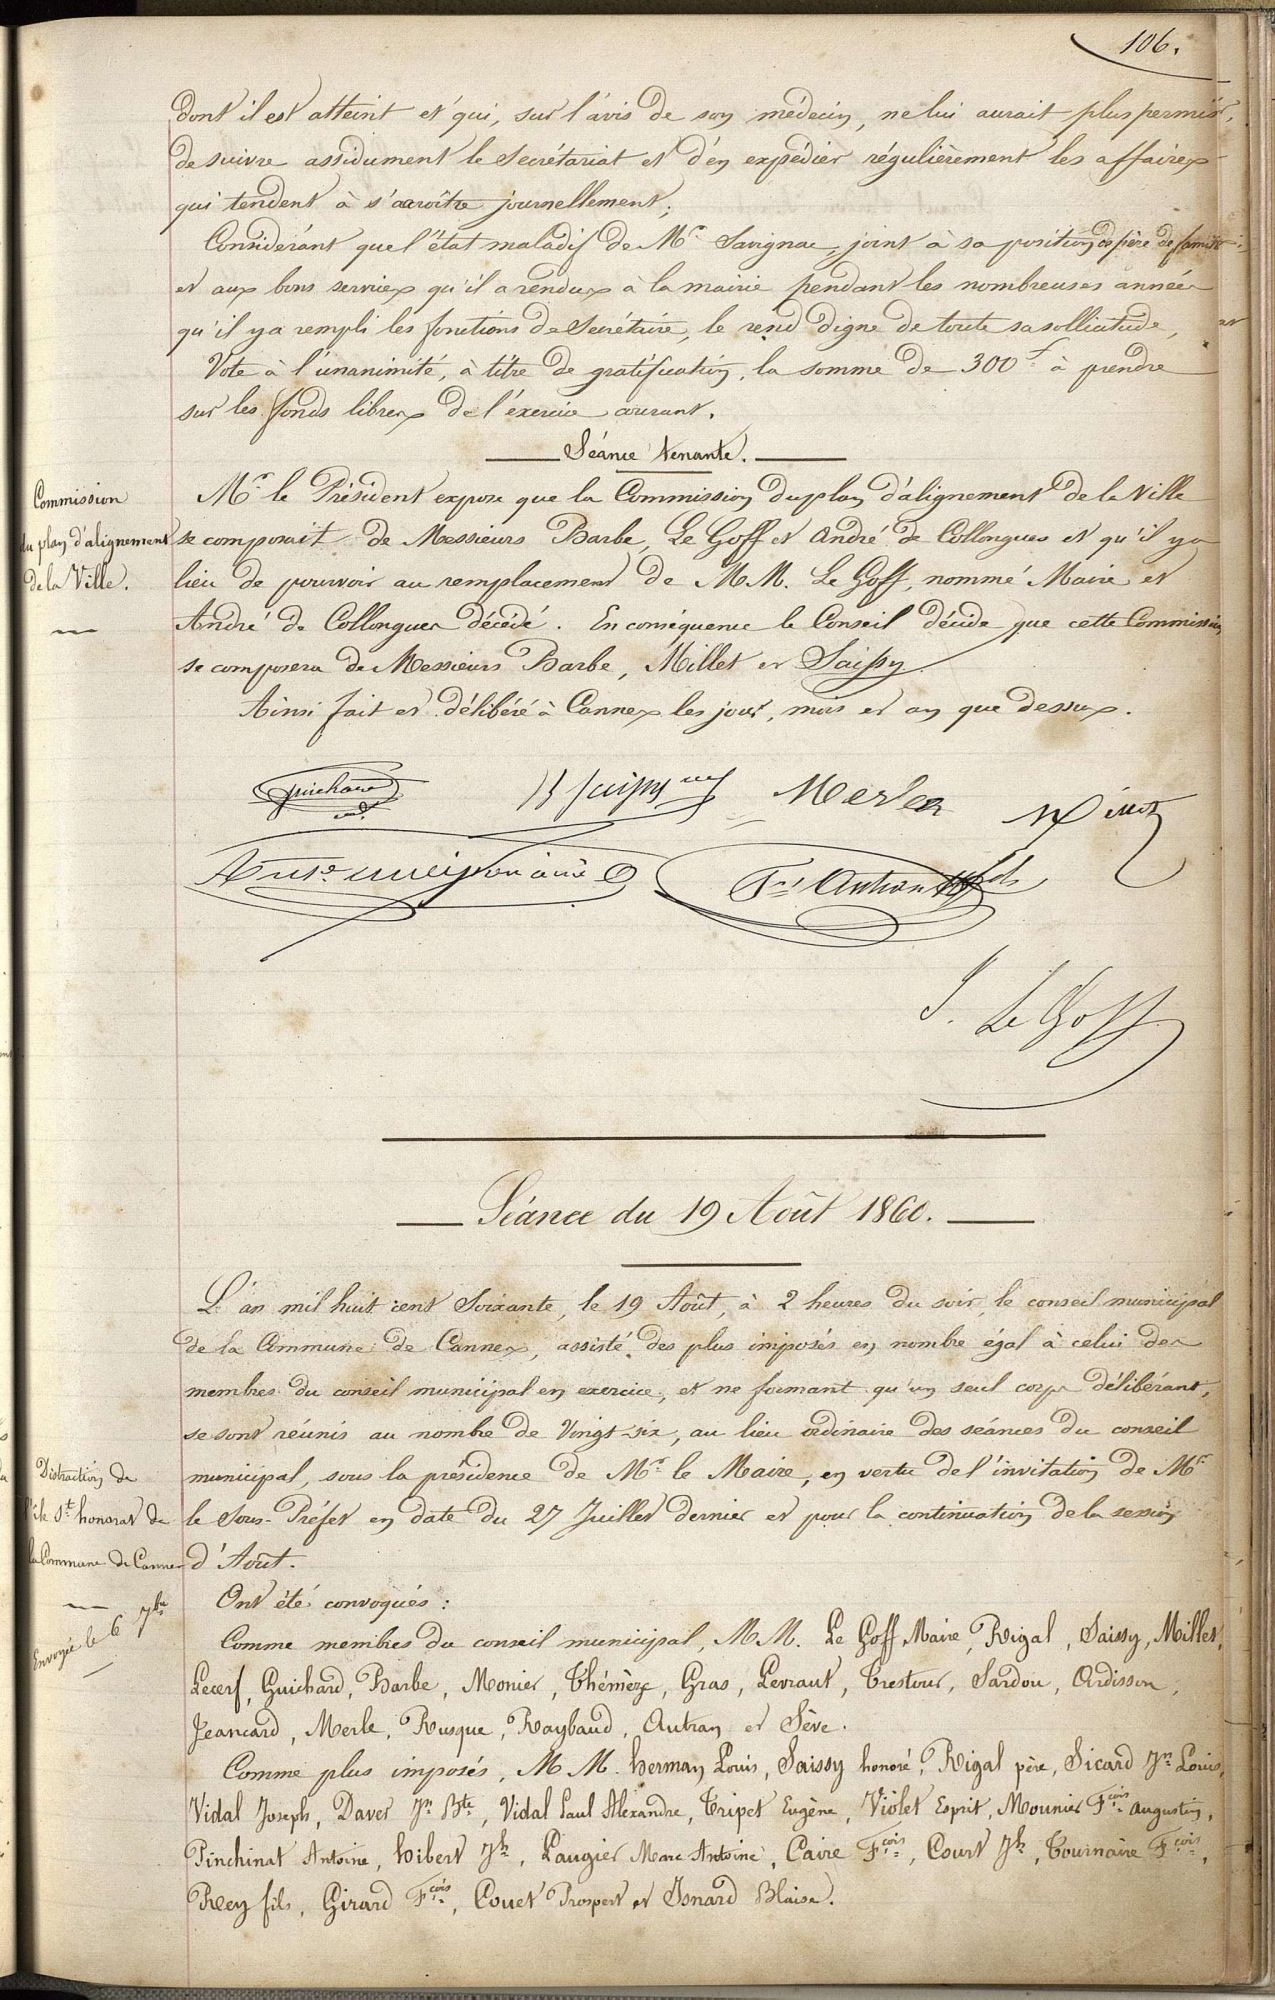 106.
dont il est atteint et qui, sur l'avis de son médecin, ne lui aurait plus permis,
de suivre assidument le Secrétariat et d'en expédier régulièrement les affaires
qui tendent à s'accroître journellement;
Considérant que l'état maladif de Mr. Savignac, joint à sa position de père de famille
et aux bons services qu'il a rendus à la mairie pendant les nombreuses années
qu'il y a rempli les fonctions de Secrétaire, le rend digne de toute sa sollicitude,
Vote à l'unanimité, à titre de gratification, la somme de 300f à prendre
sur les fonds libres de l'éxercice courant.
Séance tenante.
Commission
du plan d'alignement
de la Ville.
Mr. le Président expose que la Commission du plan d'alignement de la Ville
se composait de Messieurs Barbe, Le Goff et André de Collongues et qu'il y a
lieu de pourvoir au remplacement de M.M. Le Goff, nommé Maire et
André de Collongues décédé. En conséquence le Conseil décide que cette Commission
se composera de Messieurs Barbe, Millet et Saissy
Ainsi fait et délibéré à Cannes les jour, mois et an que dessus.
Guichard
Saissy
Merle
Millet
Fois Autran fils
J. Le Goff
Séance du 19 Août 1860.
L'an mil huit cent Soixante, le 19 Août, à 2 heures du soir, le conseil municipal
de la Commune de Cannes, assisté des plus imposés en nombre égal à celui des
membres du conseil municipal en exercice, et ne formant qu'un seul corps délibérant,
se sont réunis au nombre de Vingt-six, au lieu ordinaire des séances du conseil
municipal, sous la présidence de Mr. le Maire, en vertu de l'invitation de Mr.
le Sous-Préfet en date du 27 Juillet dernier et pour la continuation de la session
d'Août.
Distraction de
l'île St. honorat de
la Commune de Cannes
Envoyée le 6 7bre
Ont été convoqués :
Comme membres du conseil municipal, M.M. Le Goff Maire, Rigal, Saissy, Millet,
Lecerf, Guichard, Barbe, Monier, Thémèze, Gras, Levraut, Trestour, Sardou, Ardisson,
Jeancard, Merle, Rusque, Raybaud, Autran et Sève.
Comme plus imposés, M.M. herman Louis, Saissy honoré, Rigal père, Sicard Jn Louis,
Vidal Joseph, Daver Jn Bte, Vidal Paul Alexandre, Tripet Eugène, Violet Esprit, Mounier Fçois augustin,
Pinchinat Antoine, hibert Jh, Laugier Marc Antoine, Caire Fçois, Court Jh, Tournaire Fçois,
Rey fils, Girard Fçois, Couet Prospert et Isnard Blaise.